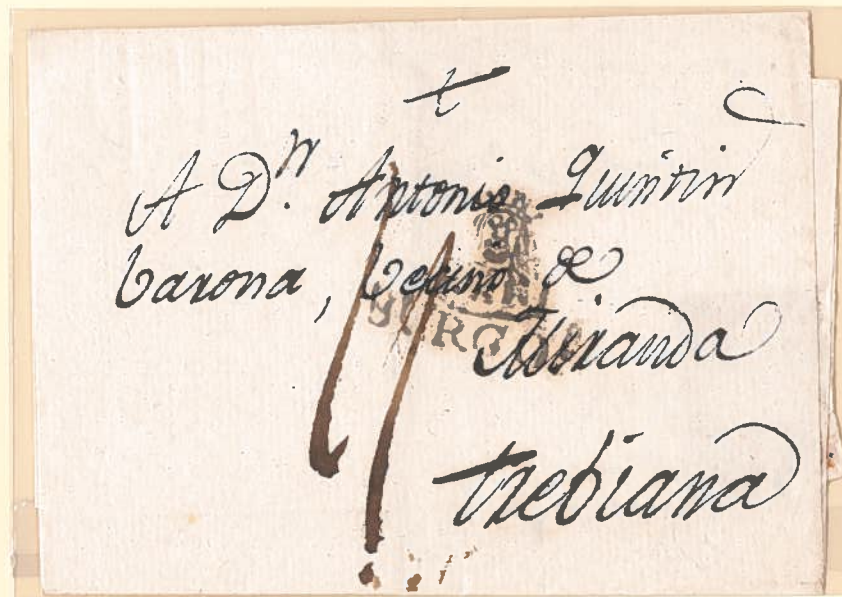 A Dⁿ. Antonio Quintin
Varona, Vecino de
BURGOS
Miranda
trebiana